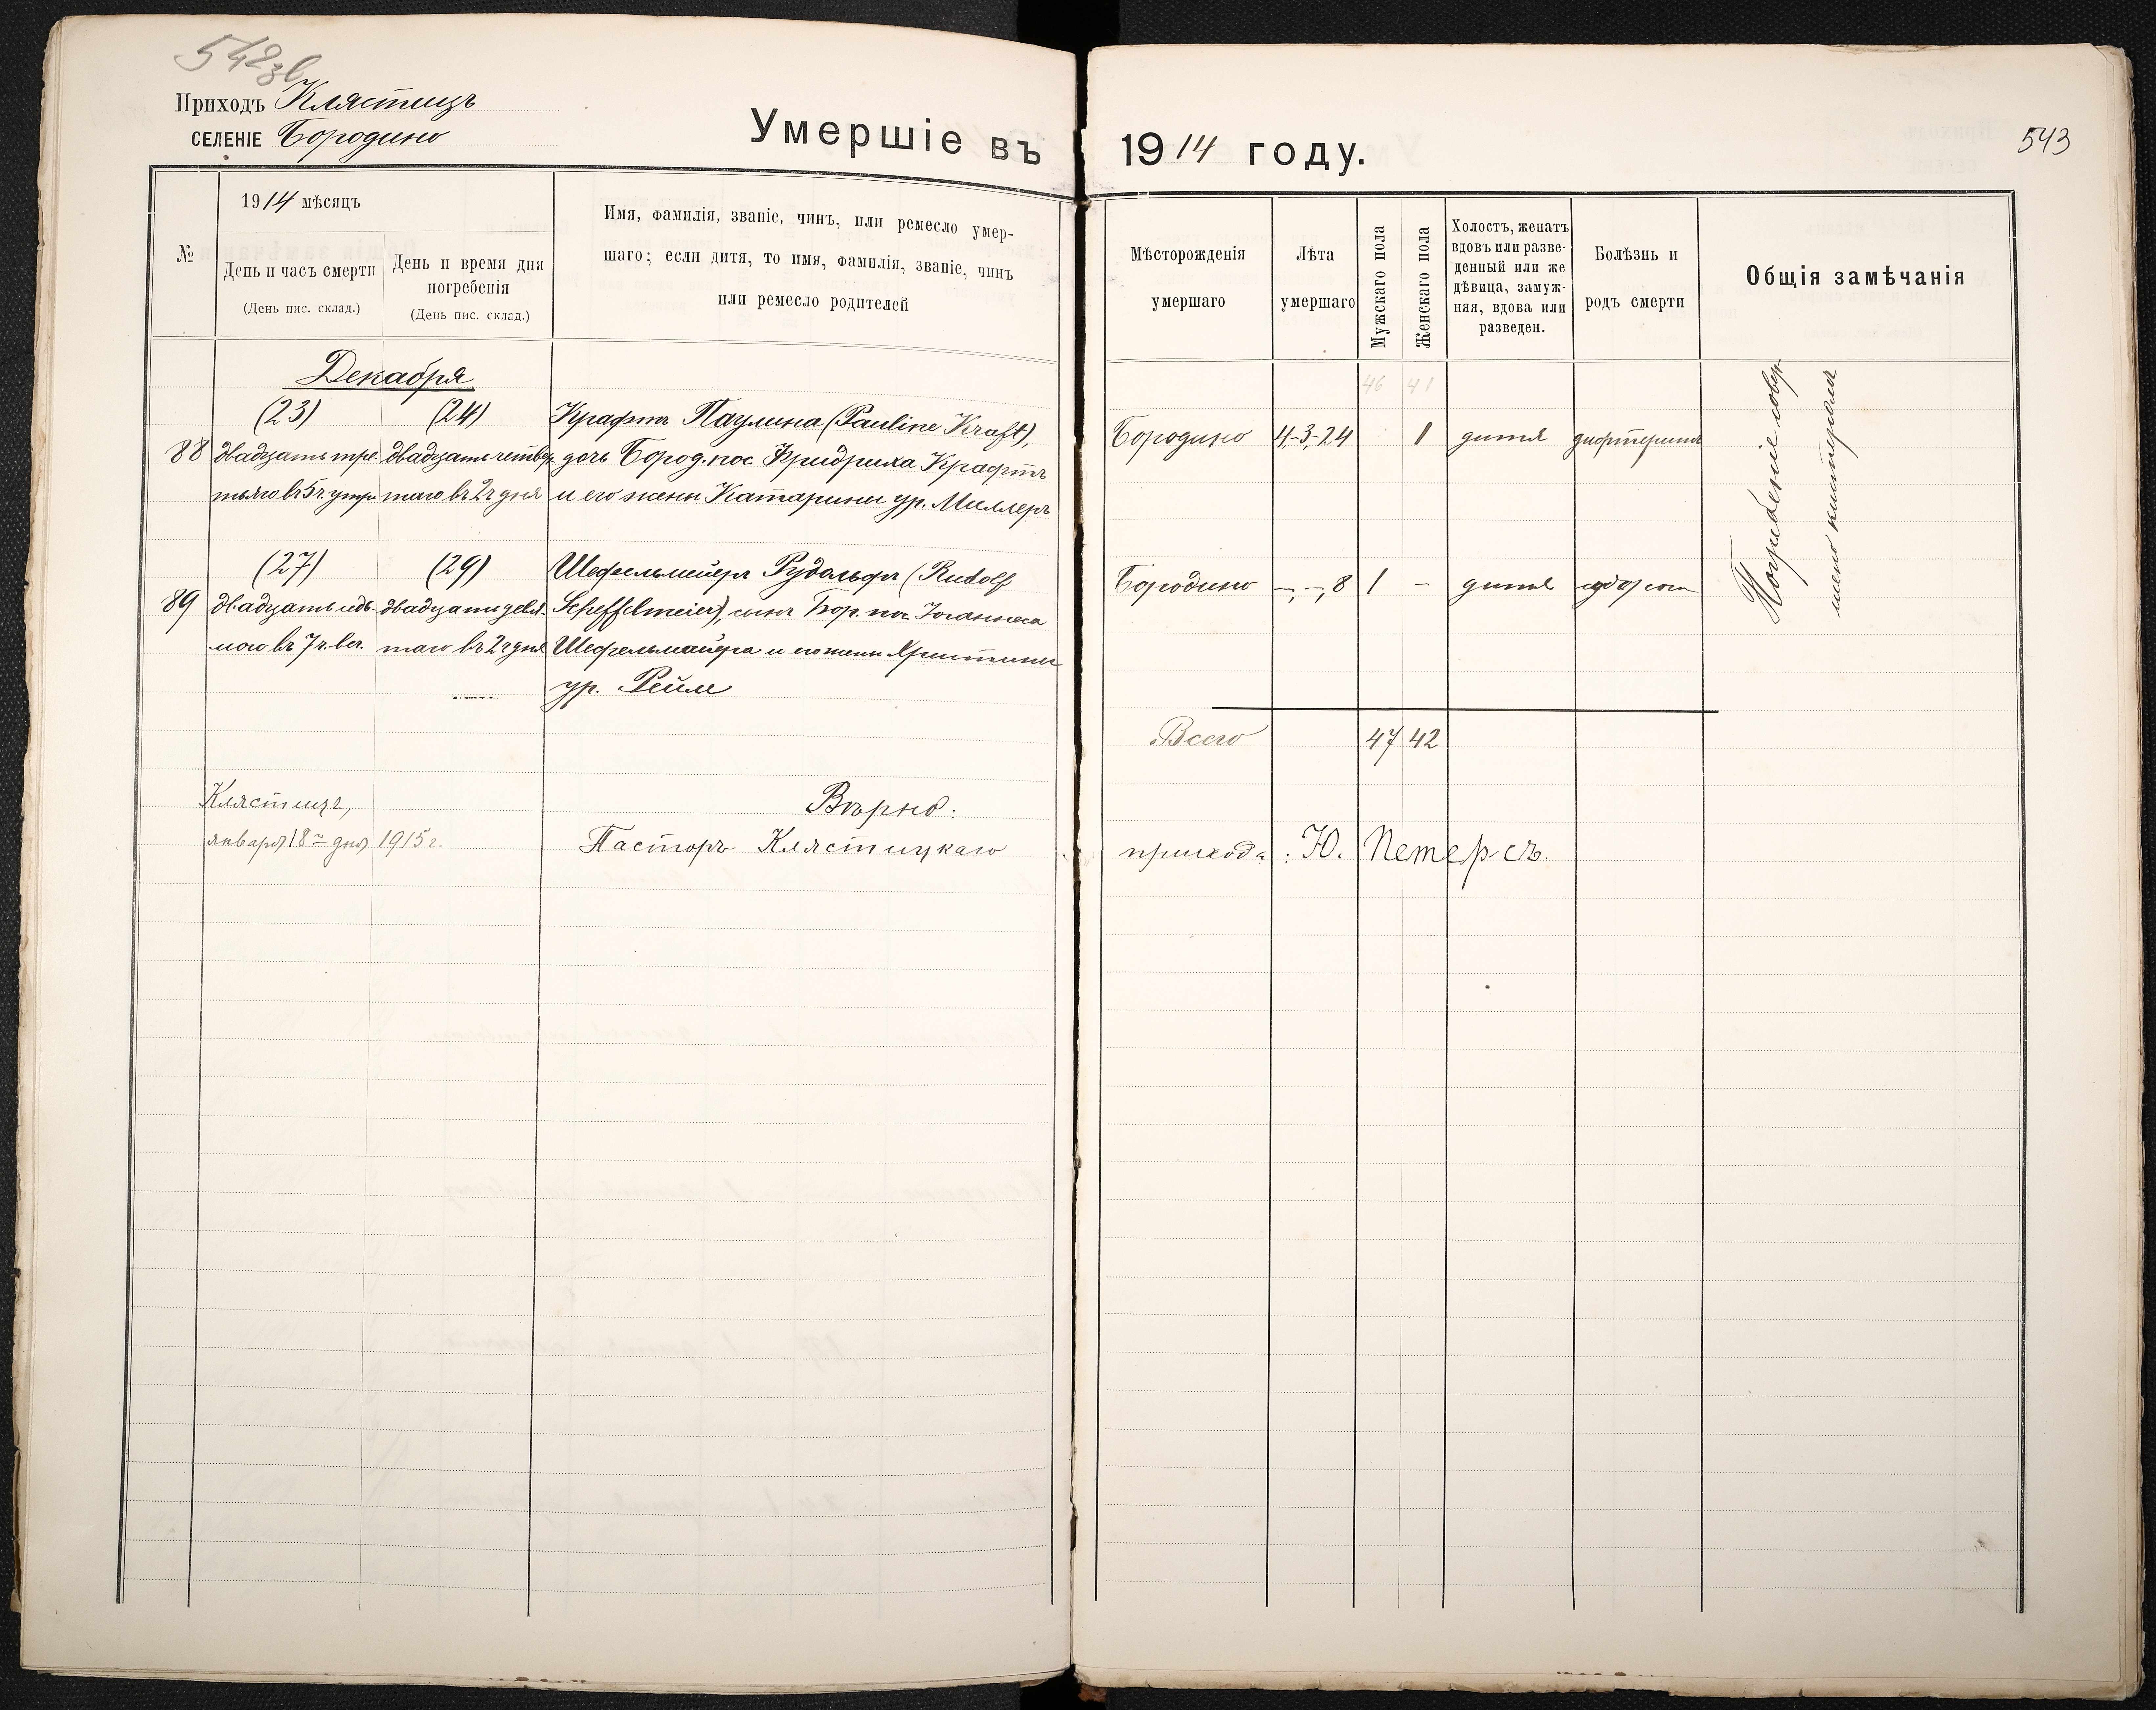 542об
Приходъ Клястицъ
СЕЛЕНІЕ Бородино
Умершіе въ 1914 году.
543
№
1914 мѣсяцъ
День и часъ смерти
(День пис. склад.)
День и время дня
погребенія
(День пис. склад.)
Имя, фамилія, званіе, чинъ, или ремесло умер-
шаго; если дитя, то имя, фамилія, званіе, чинъ
или ремесло родителей
Мѣсторожденія
умершаго
Лѣта
умершаго
Мужскаго пола
Женскаго пола
Холостъ, женатъ
вдовъ или разве-
денный или же
дѣвица, замуж-
няя, вдова или
разведен.
Болѣзнь и
родъ смерти
Общія замѣчанія
Декабря
46 41
(23) (24) Крафтъ Паулина (Pauline Kraft),
88 двадцать тре- двадцать четвер- дочь Бород. пос. Фридриха Крафтъ Бородино 4,-3,-24 1 дитя дифтеритъ
тьяго въ 5 ч. утр. таго въ 2 ч дня и его жены Катарины ур. Миллеръ
(27) (29) Шефельмейеръ Рудольфъ (Rudolf
89 двадцать седь- двадцать девя- Scheffelmeier), сынъ Бор. пос. Іоганнеса Бородино -,-,8 1 - дитя
мого въ 7 ч. веч. таго въ 2 ч дня Шефельмайера и его жены Христины
ур. Рейле
Погребеніе совер-
шено кистеромъ
Всего 47 42
Клястицъ, Вѣрно:
января 18 дня 1915 г. Пасторъ Клястицкаго прихода: Ю. Петерсъ.